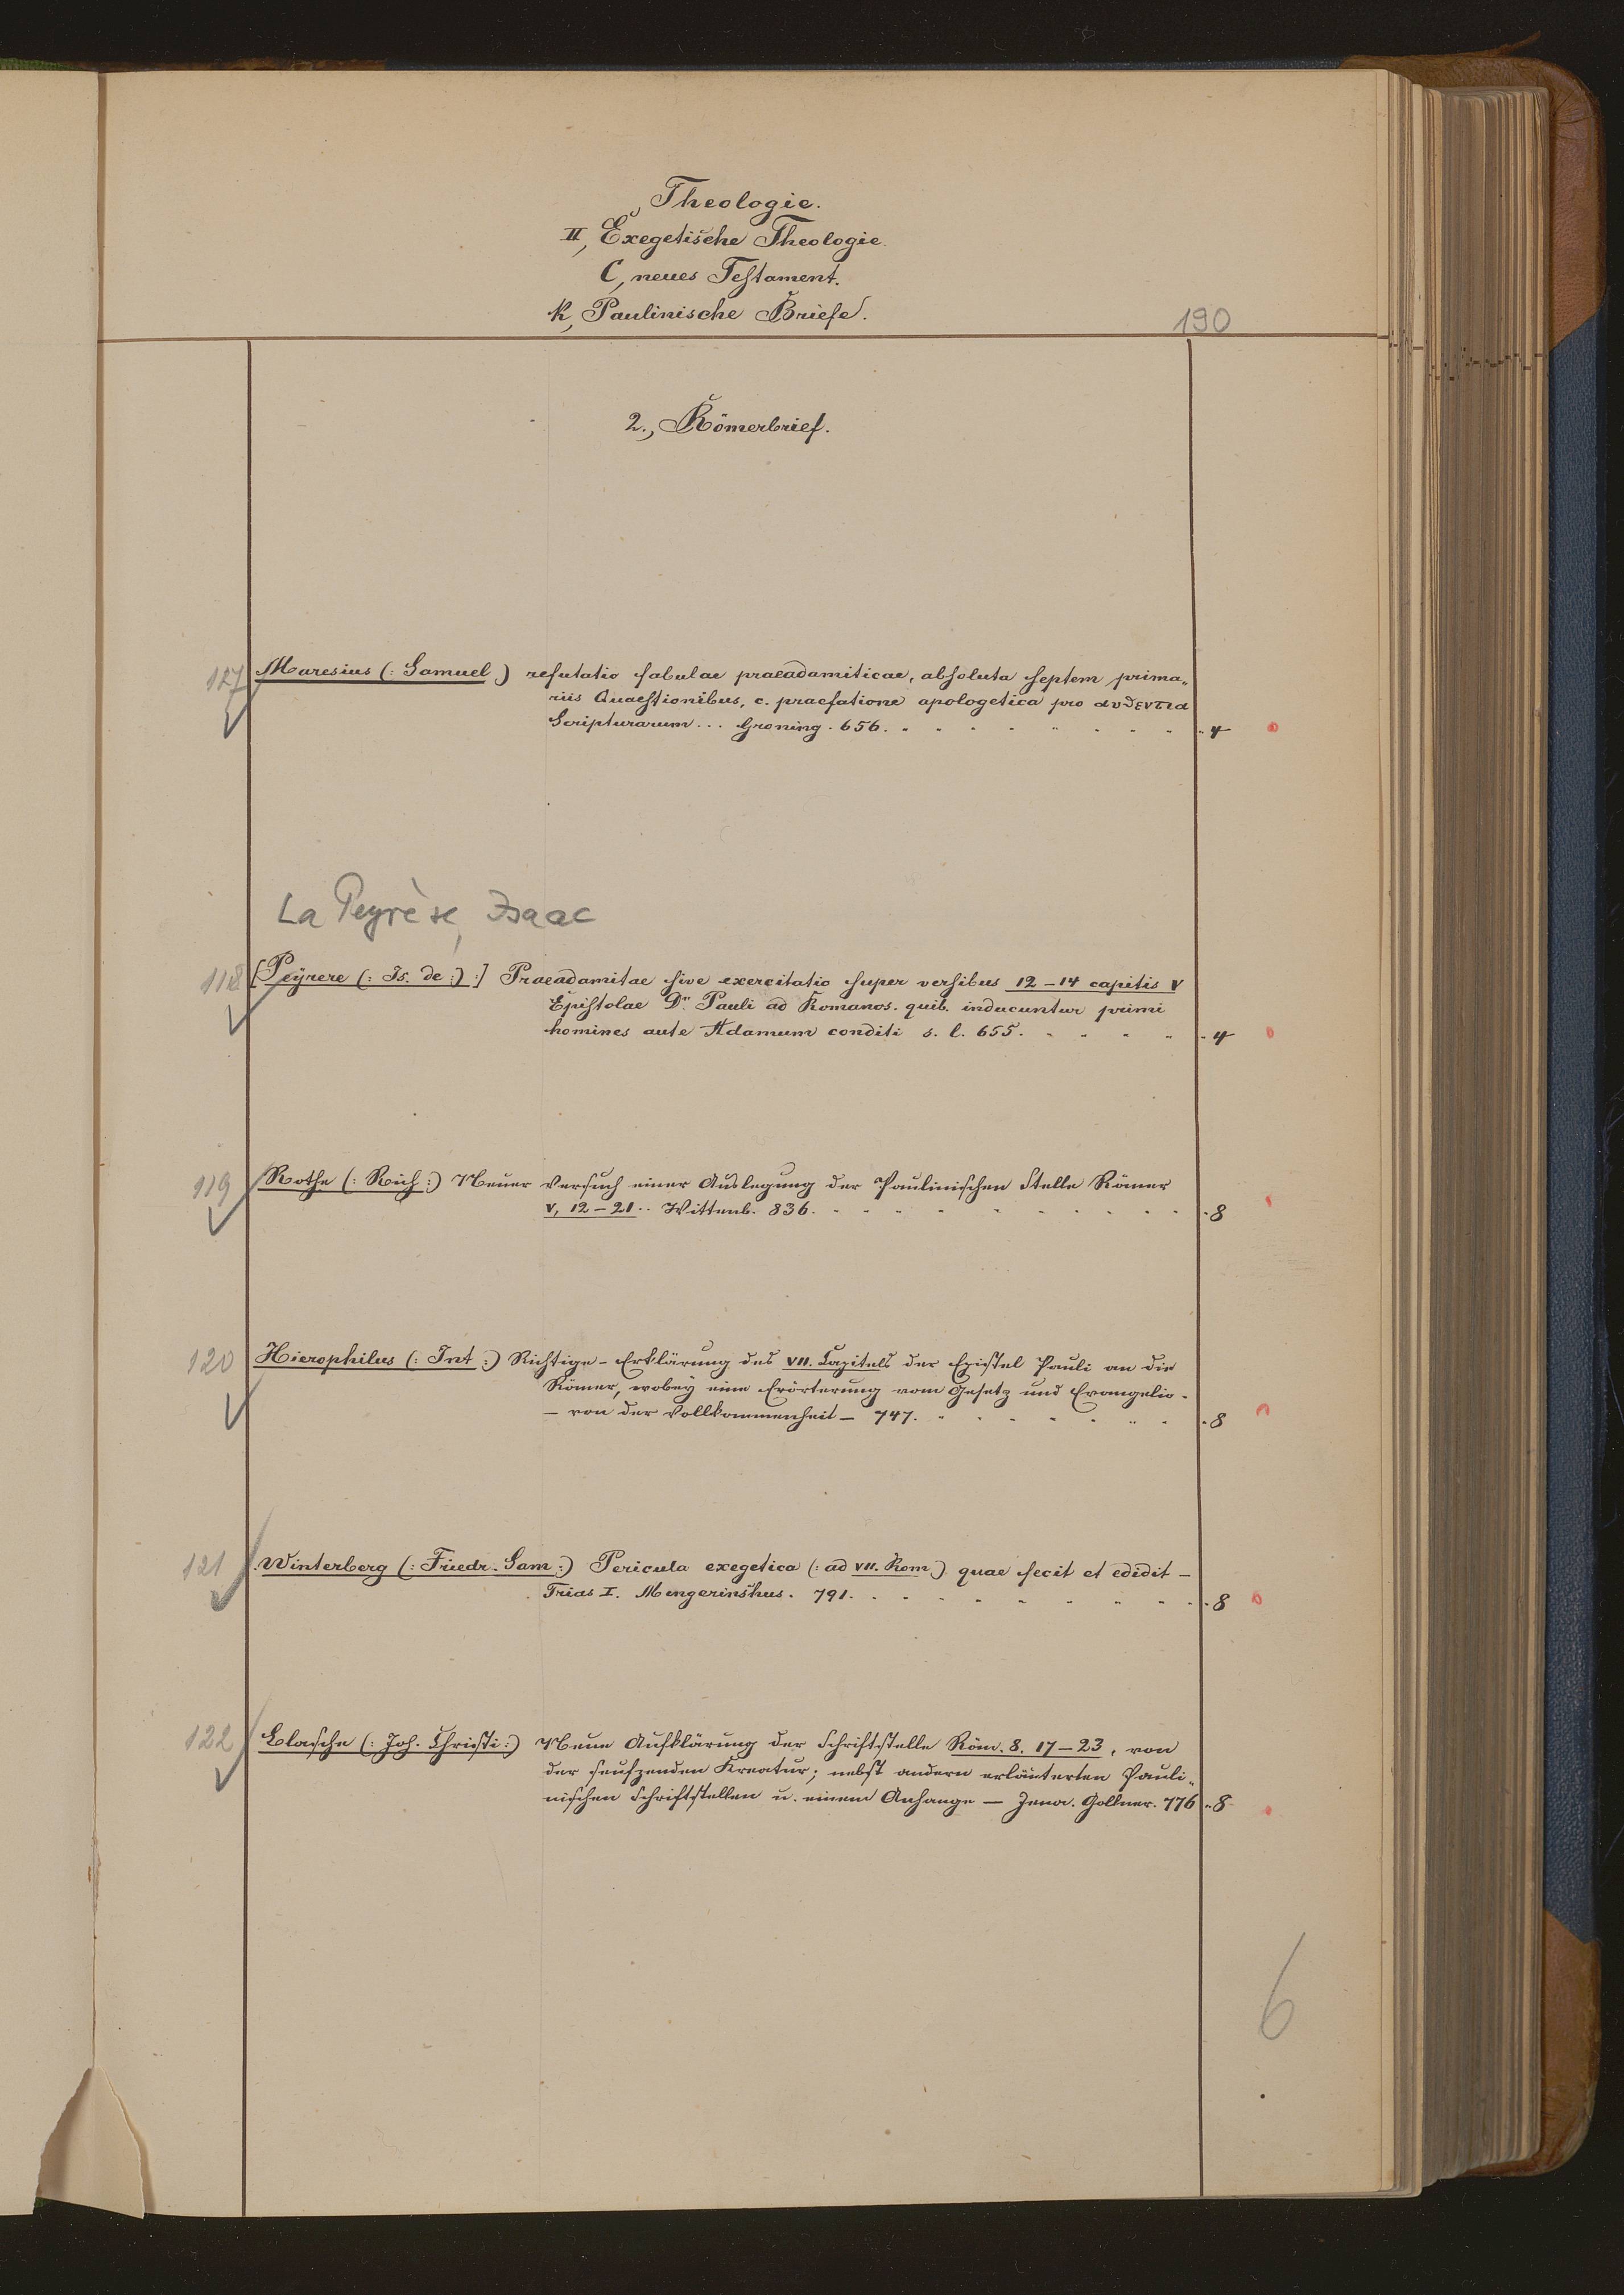 Theologie.
II, Exegetische Theologie
C, neues Testament.
k, Paulinische Briefe.
190
2., Römerbrief.
117 Maresius (: Samuel.) refutatio fabulae praeadamiticae, absoluta septem prima„
riis Quaestionibus, c. praefatione apologetica pro αυθεντια
Scripturarum... Groning. 656. 4
La Peyrère, Isaac
118 [Peÿrere (: Is. de :) :] Praeadamitae sive exercitatio super versibus 12–14 capitis V
Epistolae Dn. Pauli ad Romanos. quib. inducuntur primi
homines ante Adamum conditi s. l. 655. 4
119 Rothe (: Rich :) Neuer Versuch einer Auslegung der Paulinischen Stelle Römer
V, 12–21.. Wittenb. 836. 8
120 Hierophilus (: Int :) Richtige – Erklärung des VII. Capitels der Epistel Pauli an die
Römer, wobeÿ eine Erörterung vom Gesetz und Evangelio –
– von der Vollkommenheit – 747. 8
121 Winterberg (: Friedr. Sam :) Pericula exegetica (: ad VII. Rom.) quae fecit et edidit –
Trias I. Mengerinshus. 791. 8
122 Blasche (: Joh. Christi :) Neue Aufklärung der Schriftstelle Röm. 8. 17–23, von
der seufzenden Kreatur; nebst andern erläuterten Pauli„
nischen Schriftstellen u. einem Anhange – Jena. Gollner. 776 8
6